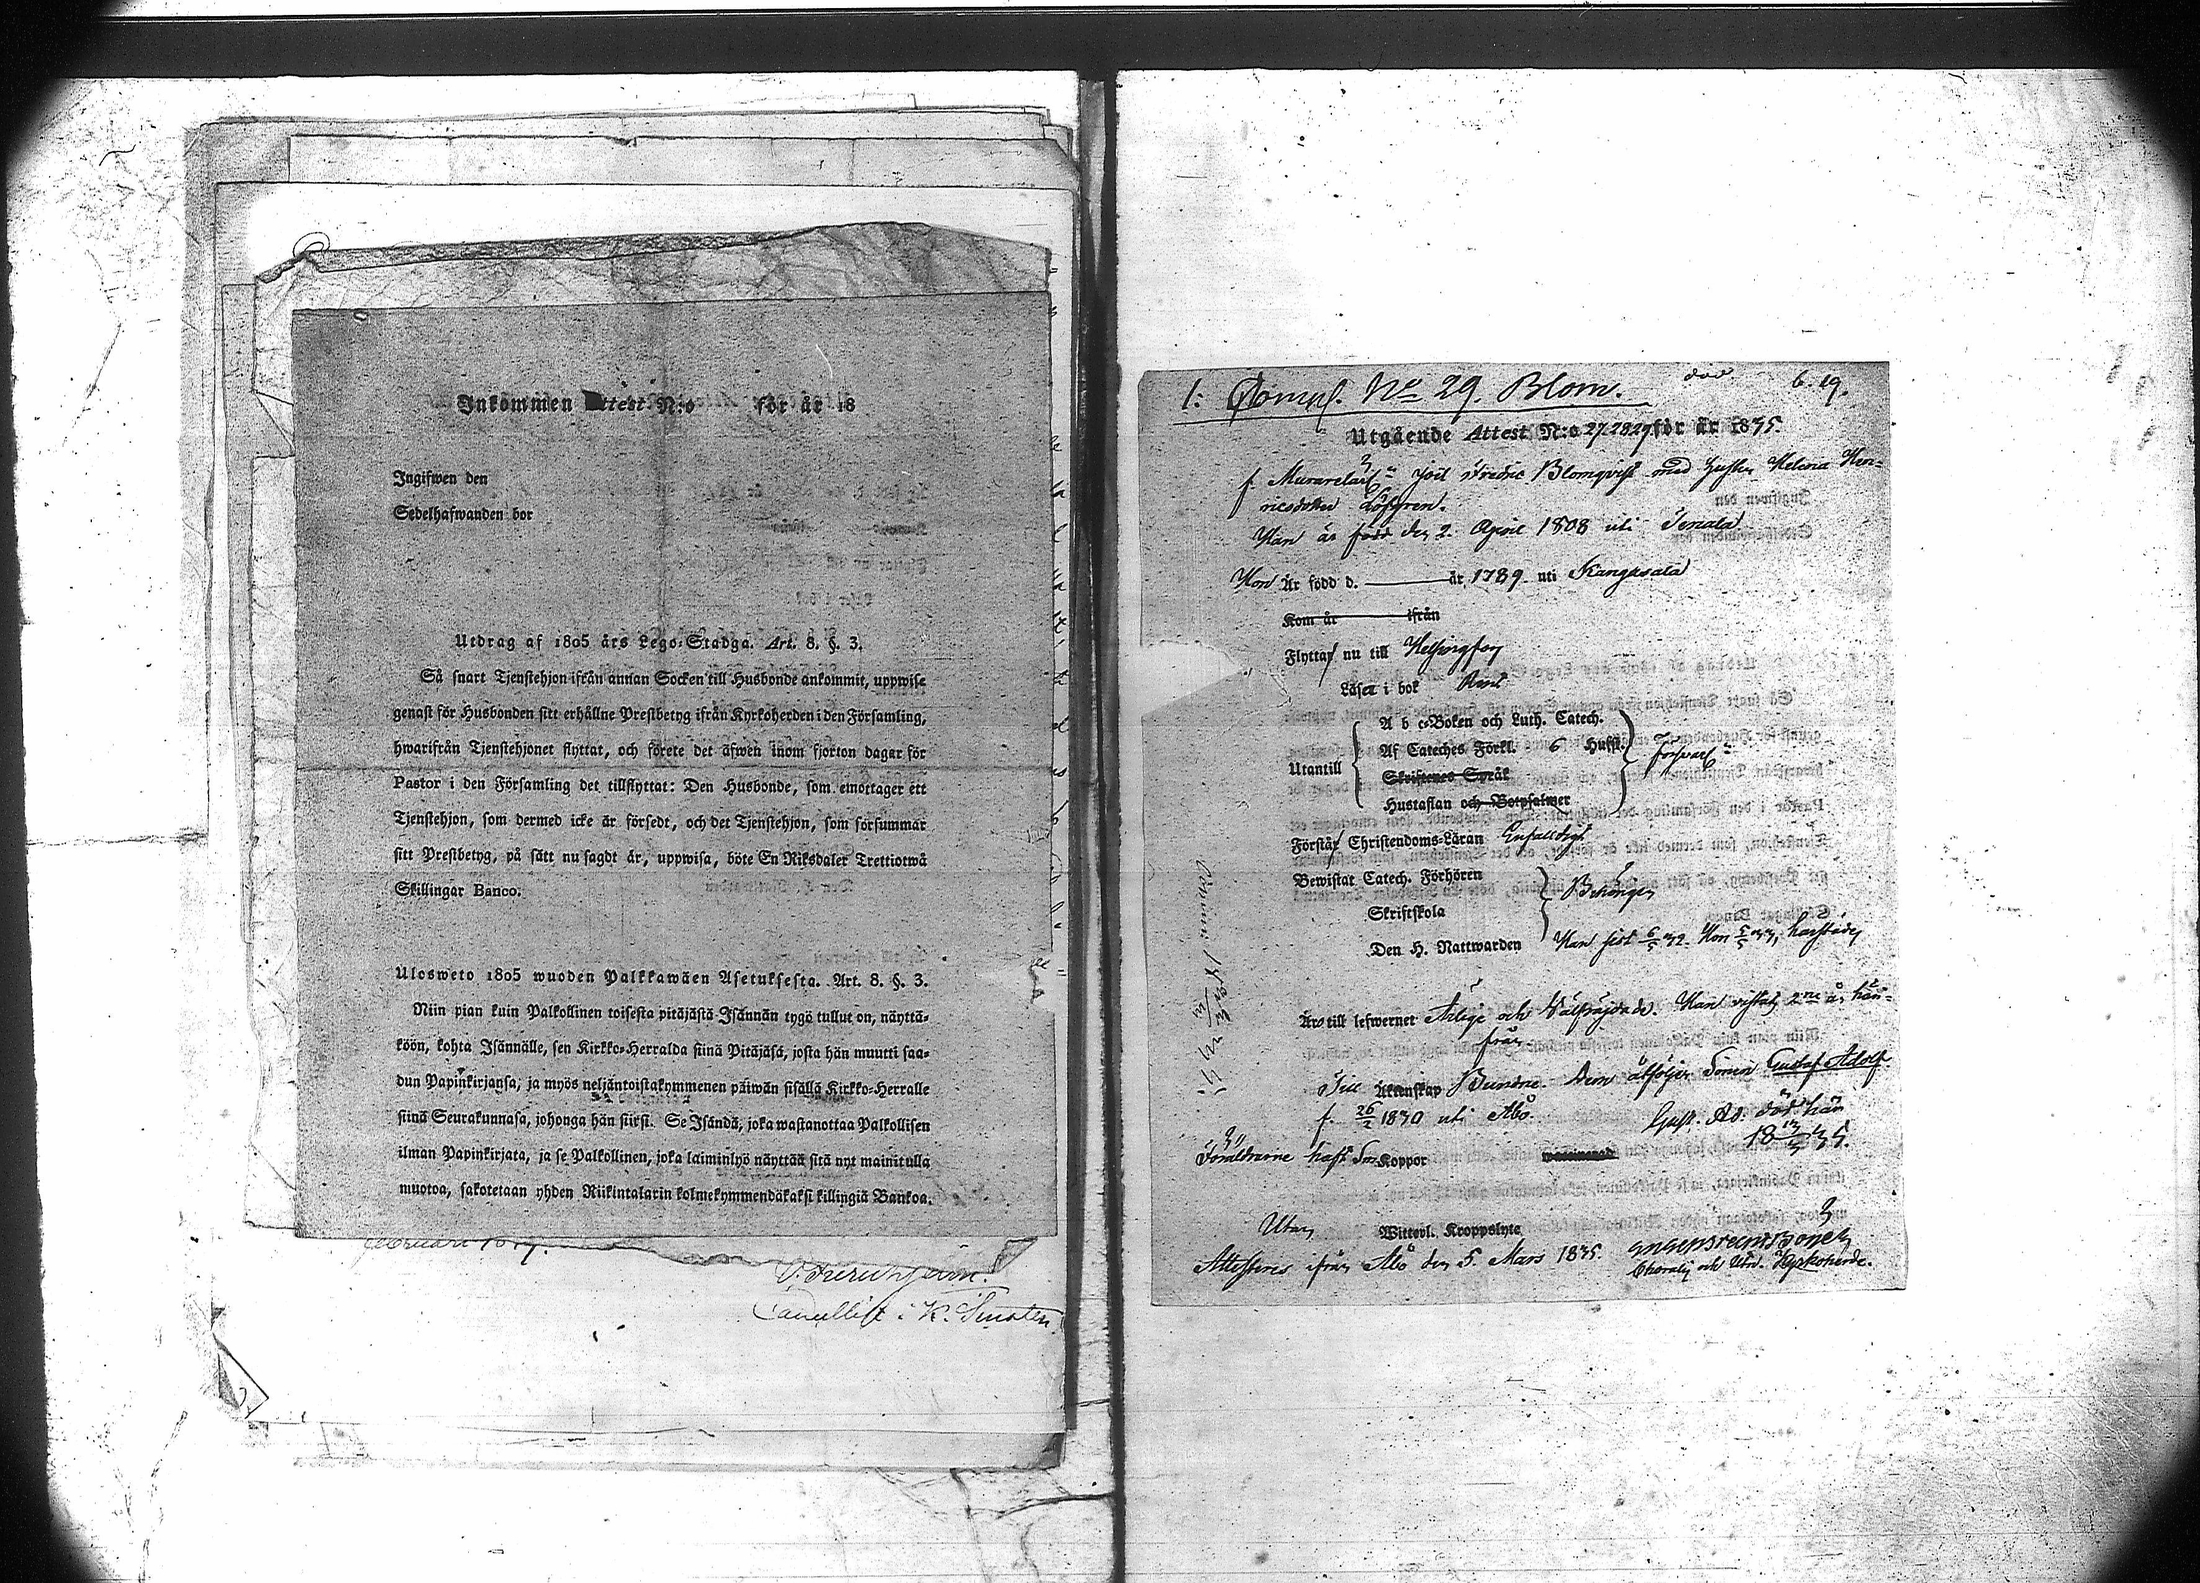 Inkommen Attest N:o för år 18
Ingifwen den
Sedelhafwanden bor
Utdrag af 1805 års Lego-Stadga. Art. 8. §. 3.
Så snart Tjenstehjon ifrån annan Socken till Husbonde ankommit, uppwise
genast för Husbonden sitt erhållne Prestbetyg ifrån Kyrkoherden i den Församling,
hwarifrån Tjenstehjonet flyttat, och förete det äfwen inom fjorton dagar för
Pastor i den Församling det tillflyttat: Den Husbonde, som emottager ett
Tjenstehjon, som dermed icke är försedt, och det Tjenstehjon, som försummar
sitt Prestbetyg, på sätt nu sagdt är, uppwisa, böte En Riksdaler Trettiotwå
Skillingar Banco.
Ulosweto 1805 wuoden Palkkawäen Asetuksesta. Art. 8. §. 3.
Niin pian kuin Palkollinen toisesta pitäjästä Isännän tygö tullut on, näyttä-
köön, kohta Isännälle, sen Kirkko-Herralda siinä Pitäjäsä, josta hän muutti saa-
dun Papinkirjansa; ja myös neljäntoistakymmenen päiwän sisällä Kirkko-Herralle
siinä Seurakunnasa, johonga hän siirsi. Se Isändä, joka wastanottaa Palkollisen
ilman Papinkirjata, ja se Palkollinen, joka laiminlyö näyttää sitä nyt mainitulla
muotoa, sakotetaan yhden Riikintalarin kolmekymmendäkaksi killingiä Bankoa.
Cancellist i K. Senaten.
1: Compl. No 29. Blom. 6. 19.
Utgående Attest N:o 27.28.29 för år 1835.
f. Joel Fredric Blomqvist med hustru Helena Hen-
ricsdotter Löfgren.
Han är född den 2. April 1808 uti Tenala
Hon Är född d. år 1789 uti Kangasala
Kom år ifrån
Flyttar nu till Helsingfors
Läser i bok Rent
A b c-Boken och Luth. Catech.
Utantill Af Cateches Förkl. 6 Hufst.
Skriftenes Språk
Hustaflan och Botpsalmer
Förstår Christendoms-Läran Enfaldigt
Bewistat Catech. Förhören
Skriftskola
Den H. Nattwarden Han sist 6/5 32. Hon 5/5 33, härstädes
Äro till lefwernet Ärlige och Välfräjdade. Han vistats 2ne år här-
ifrån
Till Äktenskap Bundne. Dem åtföljer Sonen Gustaf Adolf
f. 26/2 1830 uti Åbo. Gust. Ad. död här
Föräldrarne haft Sm Koppor waccinerad
Utan Witterl. Kroppslyte
Attesteras ifrån Åbo den 5. Mars 1835.